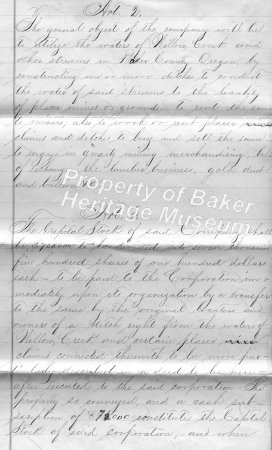 Art. 2.
The general object of the company will be
to utilize the waters of Willow Creek and
other streams in Baker County, Oregon, by
constructing one or more ditches to conduct
the water of said streams to the locality
of placer mines or grounds to rent the same
to miners, also to work or rent placer
claims and ditches to buy and sell the same
to engage in quartz mining, merchandizing,
the lumber business, gold dust
and bullion
Property of Baker
Heritage Museum
Art. 3.
The Capital Stock of said Company shall
be
five hundred shares of one hundred dollars
each to be paid to the Corporation im
mediately upon its organization by a transfer
to the same by the original locators and
owners of a ditch right from the waters of
Willow Creek and certain placer
claims connected therewith to be more par
ticularly described in a deed to be here
after executed to the said corporation The
property so conveyed, and a cash sub
scription of constitutes the Capital
Stock of said corporation, and when